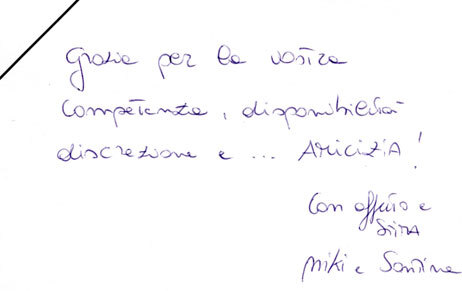 Grazie per la vostra
competenza, disponibilità
discrezione e ... AMICIZIA!
Con affetto e
stima
Miki e Santina